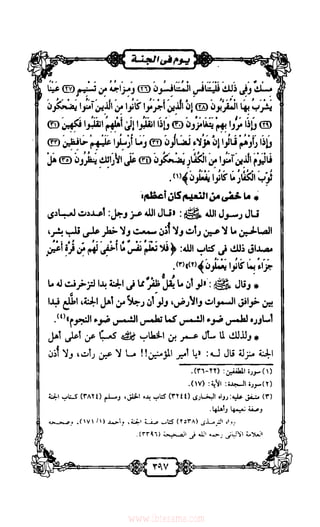 يوم فى الجنة
مسك وفى ذلك فليتنافس المتنافسون (٢٦) ومزاجه من تسنيم (٢٧) عينا
يشرب بها المقربون (٢٨) إن الذين أجرموا كانوا من الذين آمنوا يضحكون
(٢٩) وإذا مروا بهم يتغامزون (٣٠) وإذا انقلبوا إلى أهلهم انقلبوا فكهين (٣١)
وإذا رأوهم قالوا إن هؤلاء لضالون (٣٢) وما أرسلوا عليهم حافظين (٣٣)
فاليوم الذين آمنوا من الكفار يضحكون (٣٤) على الأرائك ينظرون (٣٥) هل
ثوب الكفار ما كانوا يفعلون﴾(١).
* ما خفى من النعيم كان أعظم:
قال رسول الله ﷺ: «قال الله عز وجل: أعددت لعبادى
الصالحين ما لا عين رأت ولا أذن سمعت ولا خطر على قلب بشر،
مصداق ذلك فى كتاب الله: ﴿فلا تعلم نفس ما أخفى لهم من قرة أعين
جزاء بما كانوا يعملون﴾(٢)»(٣).
* وقال ﷺ: «لو أن ما يقل ظفر مما فى الجنة بدا لتزخرفت له ما
بين خوافق السموات والأرض، ولو أن رجلاً من أهل الجنة، اطلع فبدا
أساوره لطمس ضوء الشمس كما تطمس الشمس ضوء النجوم»(٤).
* ولذلك لما سأل عمر بن الخطاب ﷺ كعبًا عن أعلى أهل
الجنة منزلة قال له: «يا أمير المؤمنين!! ما لا عين رأت، ولا أذن
(١) سورة المطففين: (٢٢-٣٦).
(٢) سورة السجدة: الآية: (١٧).
(٣) متفق عليه: رواه البخارى (٣٢٤٤) كتاب بدء الخلق، ومسلم (٢٨٢٤) كتاب الجنة
وصفة نعيمها وأهلها.
رواه الترمذى (٢٥٣٨) كتاب صفة الجنة، وأحمد (١/ ١٧١)، وصححه
العلامة الألبانى رحمه الله فى الصحيحة (٣٣٩٦).
٣٩٧
www.ibtesama.com